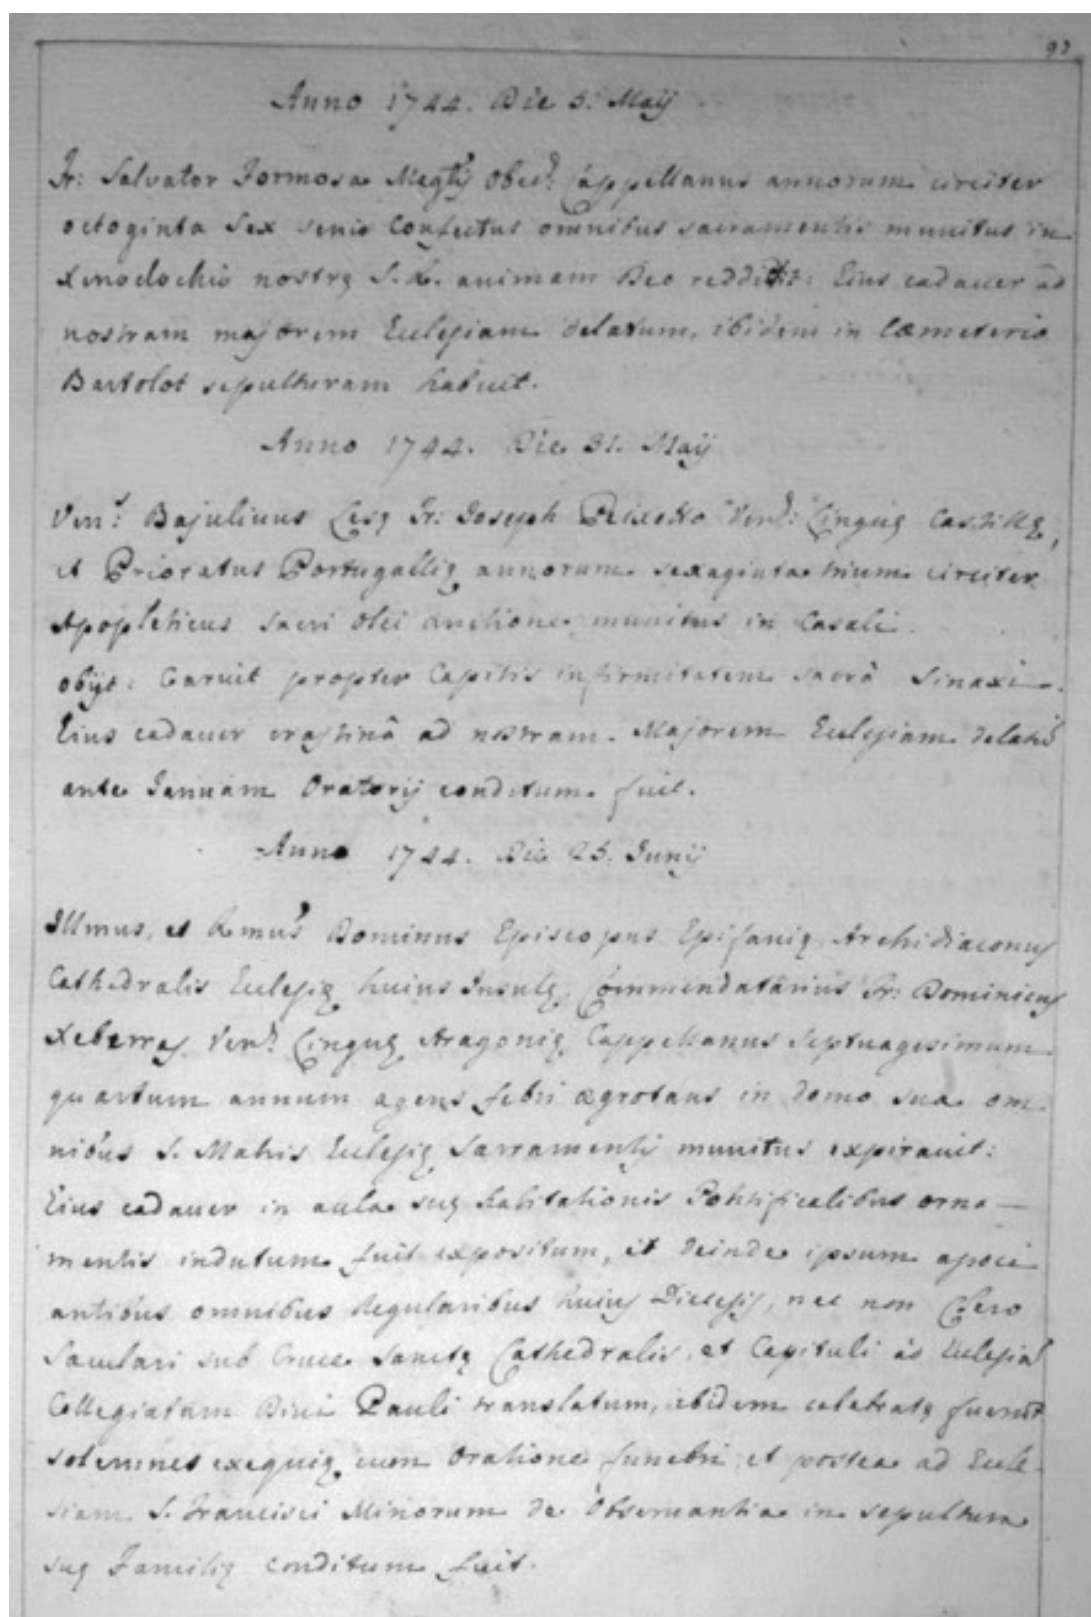 Anno 1744. Die 5. Maij
Fr: Salvator Formosa Megtij Obed: Cappellanus annorum circiter
octoginta sex senio confectus omnibus sacramentis munitus in
Xenodochio nostrę S. R. animam Deo reddidit: Eius cadaver ad
nostram majorem Ecclesiam delatum, ibidem in Cæmeterio
Bartolot sepulturam habuit.
Anno 1744. Die 31. Maij
Ven: Bajulivus Fr: Joseph Peixotto Ven: Linguę Castillę,
et Prioratus Portugallię annorum sexaginta trium circiter
Apopleticus sacri olei unctione munitus in Casali
obijt: Caruit propter Capitis infirmitatem sacrâ Sinaxi.
Eius cadaver crastinâ ad nostram Majorem Ecclesiam delatū
ante Januam Oratorij conditum fuit.
Anno 1744. Die 25. Junij
Illmus, et Rmus Dominus Episcopus Epifanię Archidiaconus
Cathedralis Ecclesię huius Insulę, Commendatarius Fr: Dominicus
Xeberras Ven: Linguę Aragonię Cappellanus septuagesimum
quartum annum agens febri ægrotans in domo sua om-
nibus S. Matris Ecclesię Sacramentis munitus expiravit:
Eius cadaver in aula suę habitationis Pontificalibus orna-
mentis indutum fuit expositum, et deinde ipsum
antibus omnibus Regularibus huius Diecesis, nec non Clero
Sæculari sub Cruce Sanctę Cathedralis, et Capituli ad Ecclesiā
Collegiatam Divi Pauli translatum, ibidem celebratę fuerunt
solemnes exequię cum Oratione funebri et postea ad Eccle-
siam S. Francisci Minorum de Observantia in sepultura
suę Familię conditum fuit.